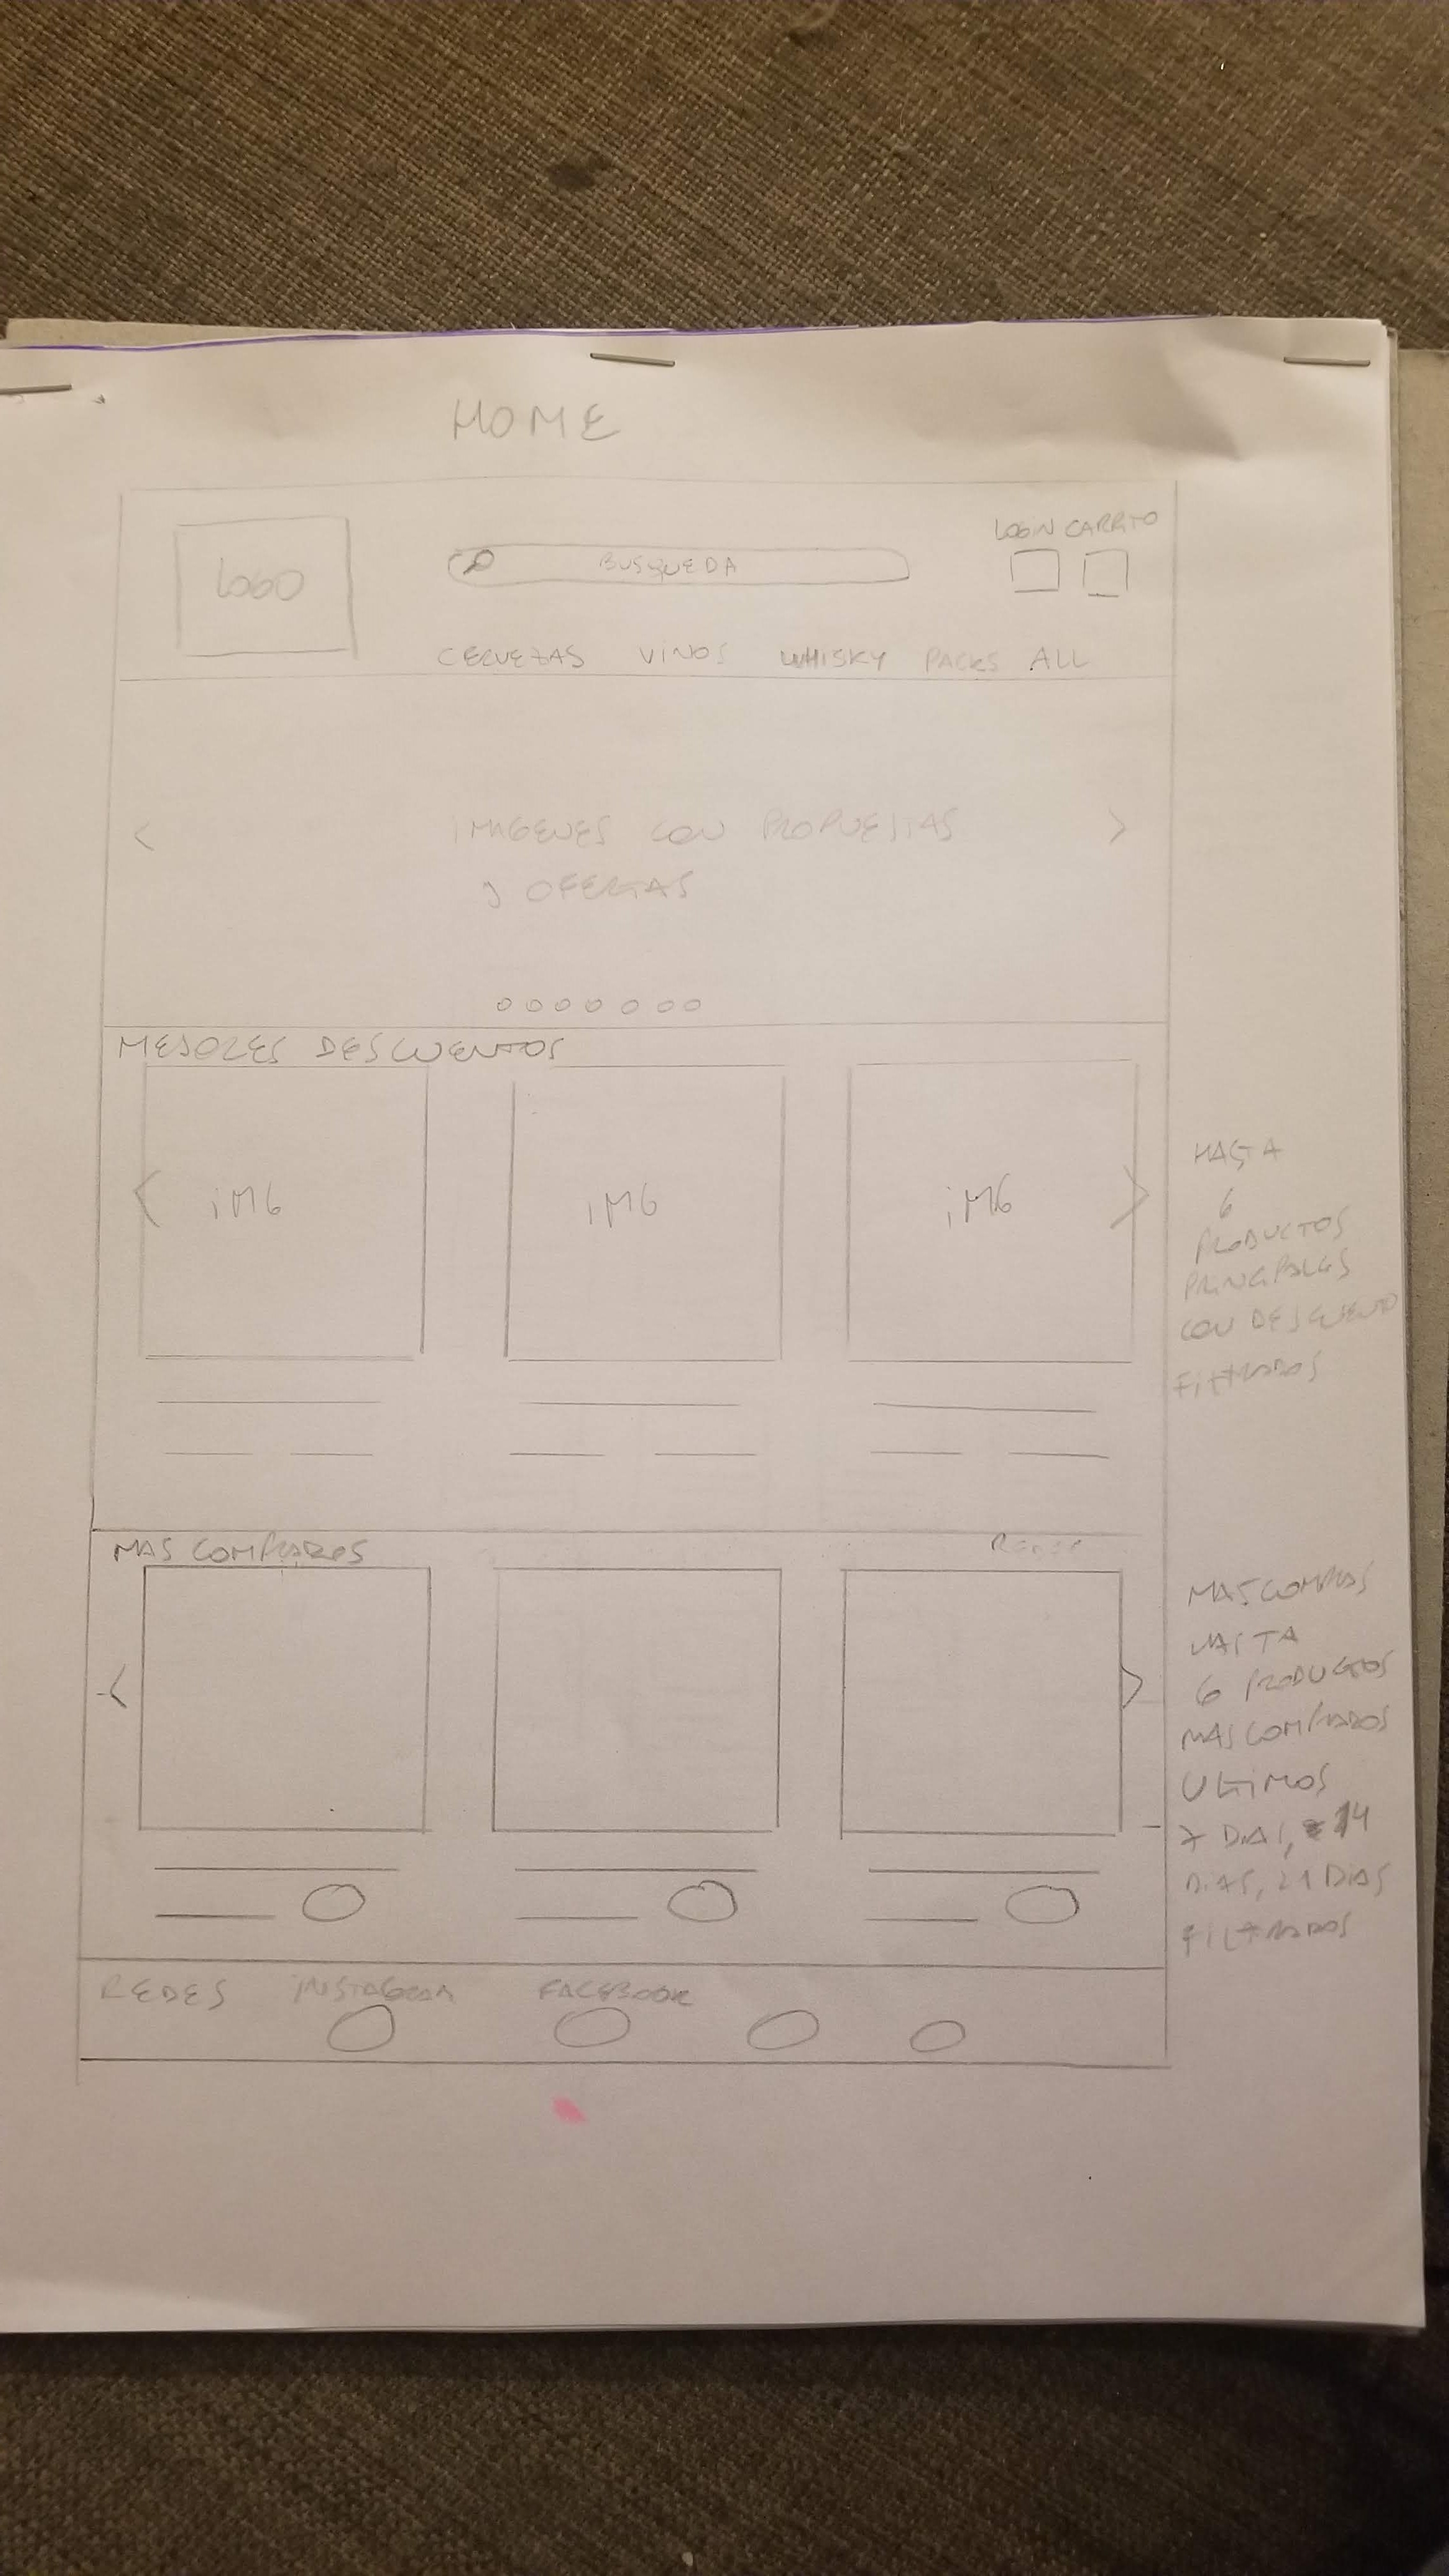 HOME
LOGO
BUSQUEDA
LOGIN CARRITO
CERVEZAS VINOS WHISKY PACKS ALL
< IMAGENES CON PROPUESTAS >
Y OFERTAS
MEJORES DESCUENTOS
< IMG IMG IMG >
HASTA
6
PRODUCTOS
PRINCIPALES
CON DESCUENTO
FILTRADOS
MAS COMPRADOS
< >
MAS COMPRAS
HASTA
6 PRODUCTOS
MAS COMPRADOS
ULTIMOS
7 DIAS, 14
DIAS, 21 DIAS
FILTRADOS
REDES INSTAGRAM FACEBOOK